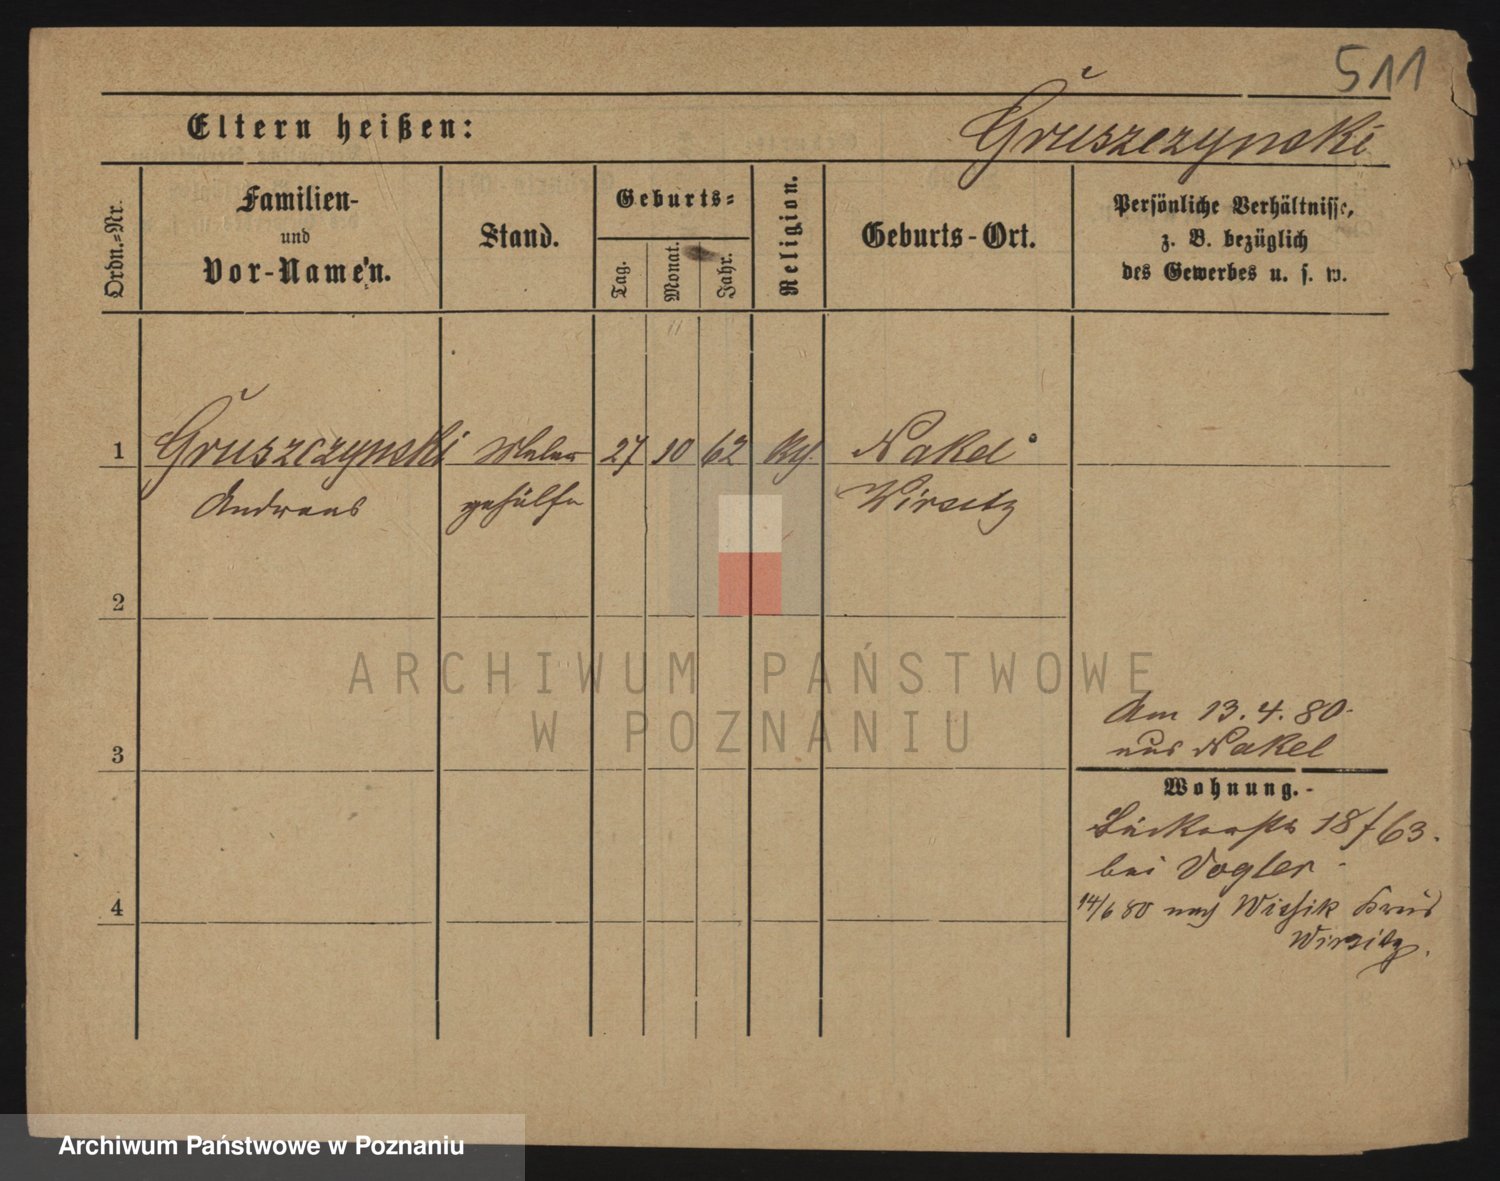 511
Eltern heißen:
Gruszczynski
Ordn.=Nr.
Familien-
und
Vor-Namen.
Stand.
Geburts=
Tag.
Monat.
Jahr.
Religion.
Geburts-Ort.
Persönliche Verhältnisse,
z. B. bezüglich
des Gewerbes u. s. w.
1 Gruszczynski Maler 27 10 62 Nakel
Andreas gehülfe Wirsitz
2
ARCHIWUM PAŃSTWOWE
W POZNANIU
Am 13.4.80.
aus Nakel
3
Wohnung.
18/63.
bei Vogler
4
14/6 80 nach Kreis
Wirsitz.
Archiwum Państwowe w Poznaniu